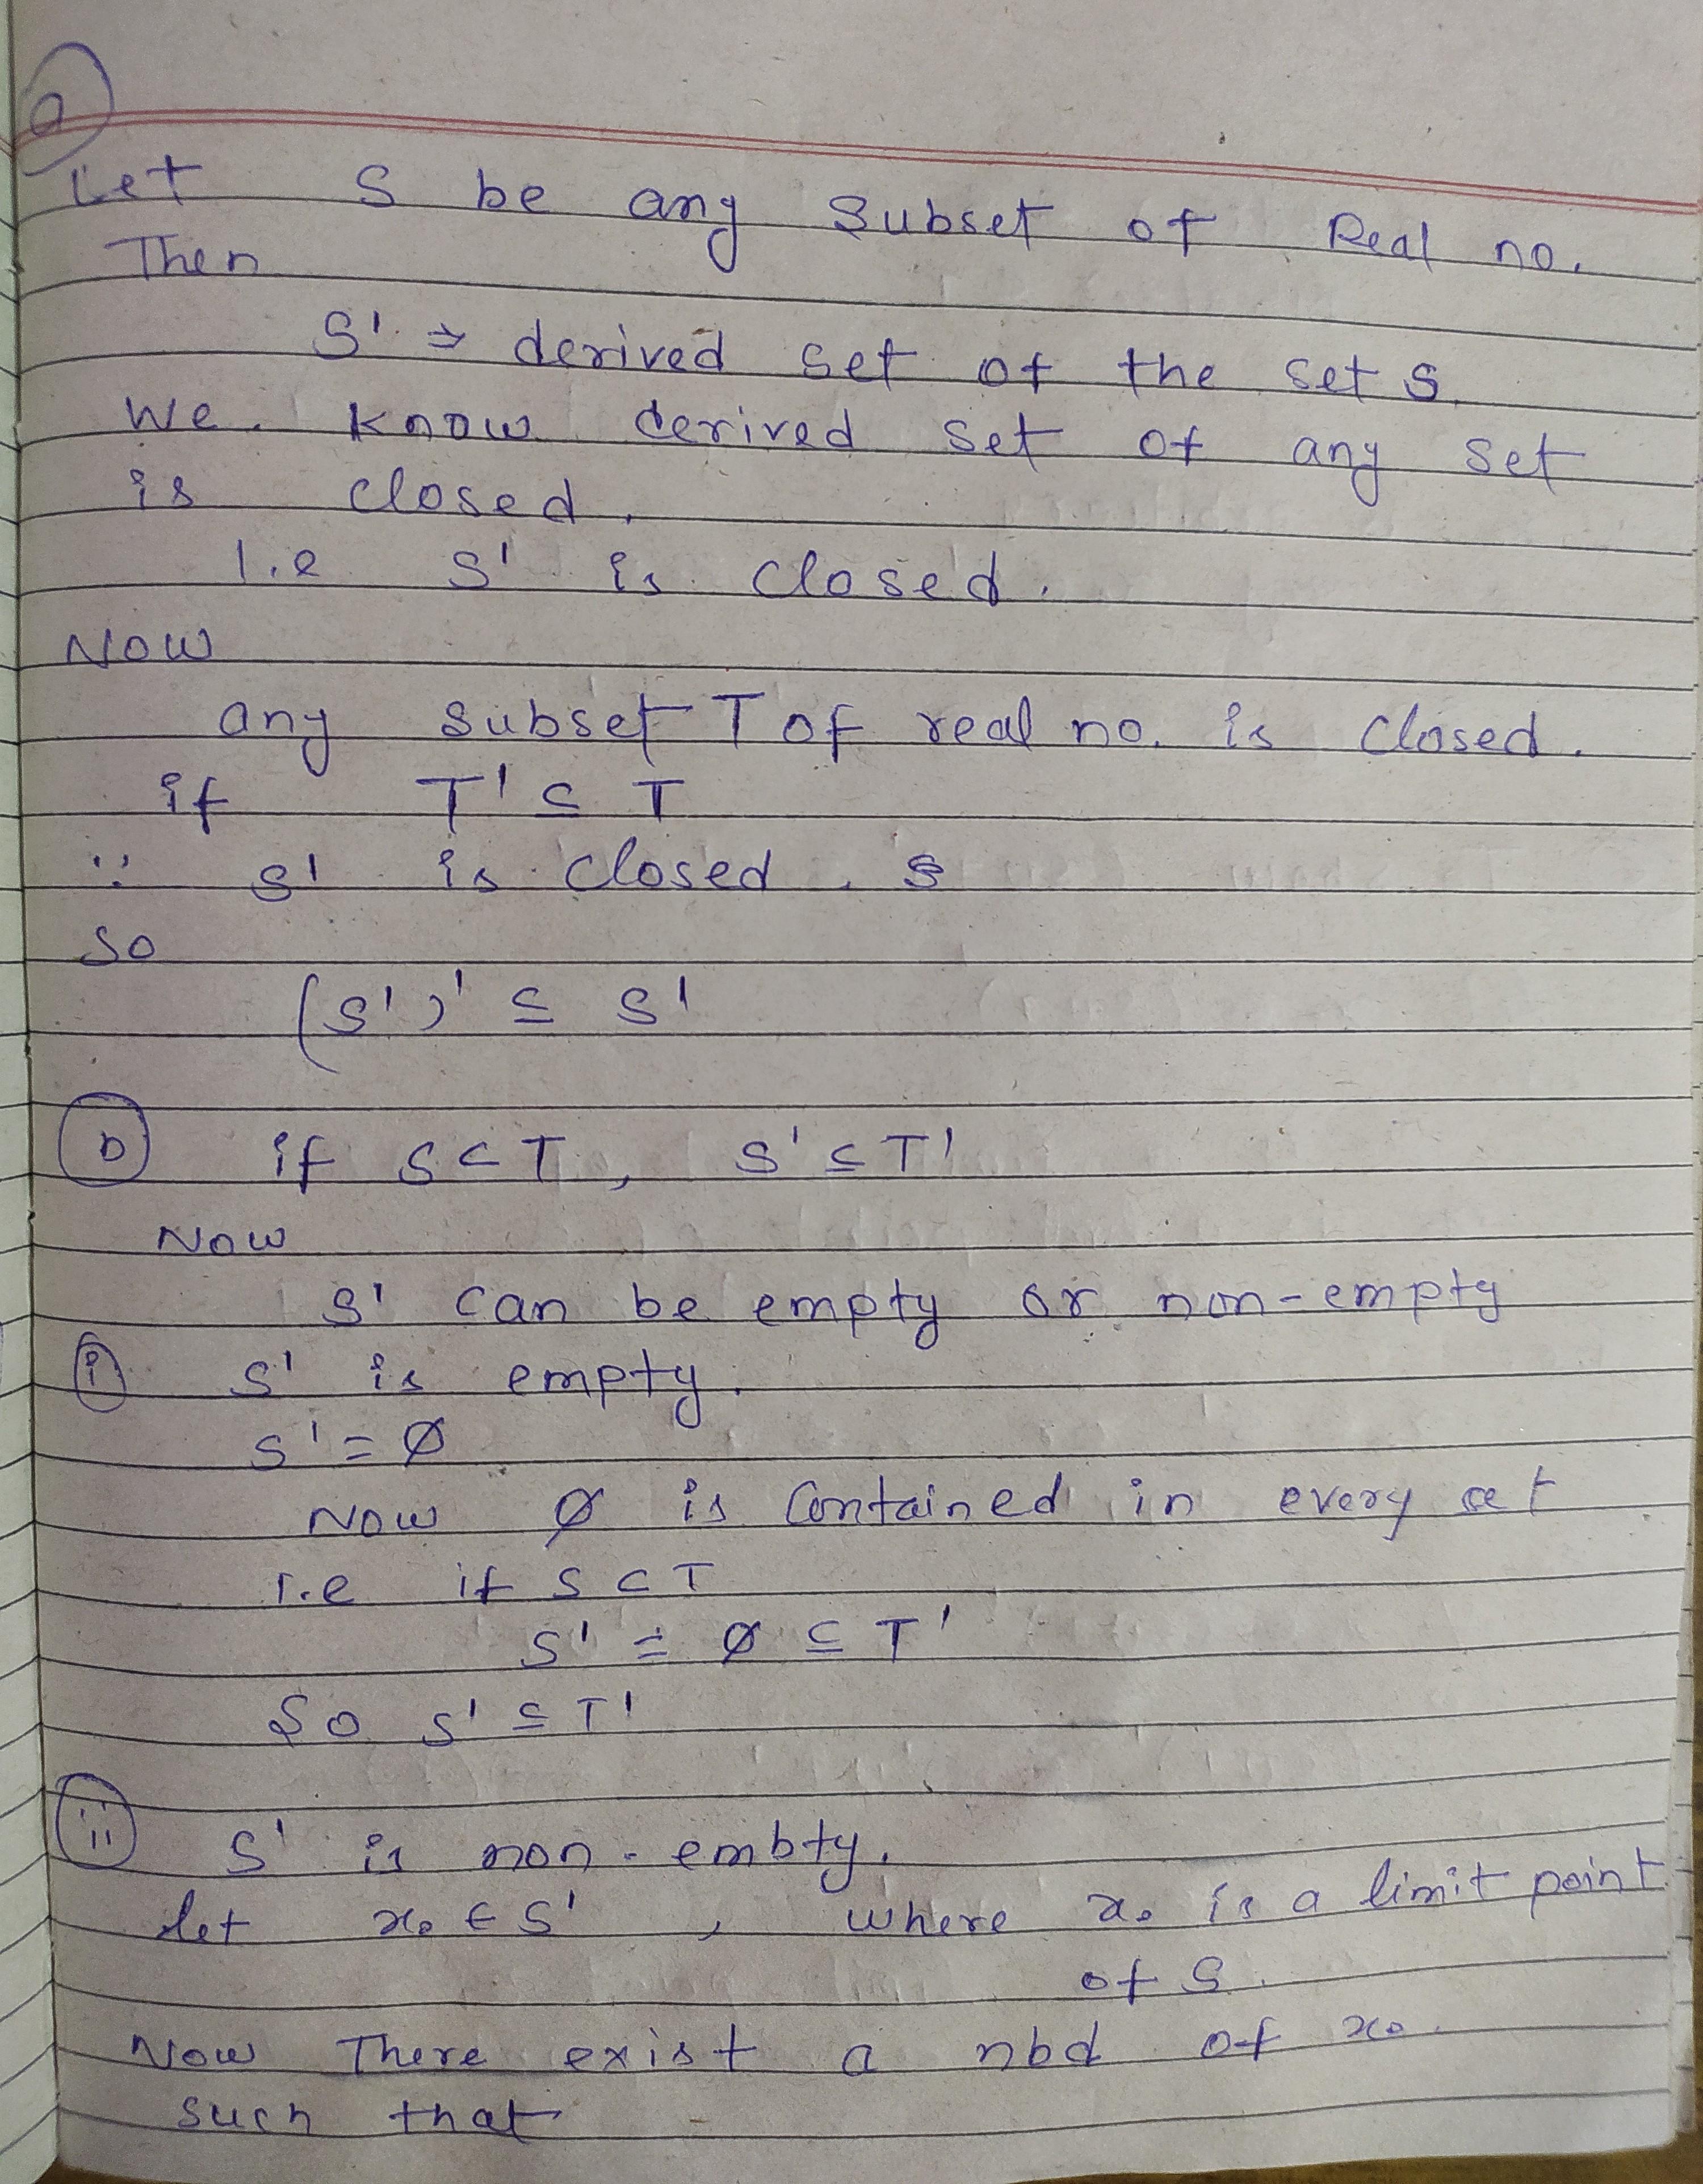 a
Let S be any subset of Real no.
Then
S' ⇒ derived set of the set S.
We know derived set of any set
is closed.
I.e S' is closed.
Now
any subset T of real no. is closed.
if T' ⊆ T
∵ S' is closed.
So
(S')' ⊆ S'
b if S ⊂ T, S' ⊆ T'
Now
S' can be empty or non-empty
i S' is empty.
S' = ∅
Now ∅ is contained in every set
I.e if S ⊂ T
S' = ∅ ⊆ T'
So S' ⊆ T'
ii S' is non-embty.
let x₀ ∈ S', where x₀ is a limit point
of S.
Now There exist a nbd of x₀
such that